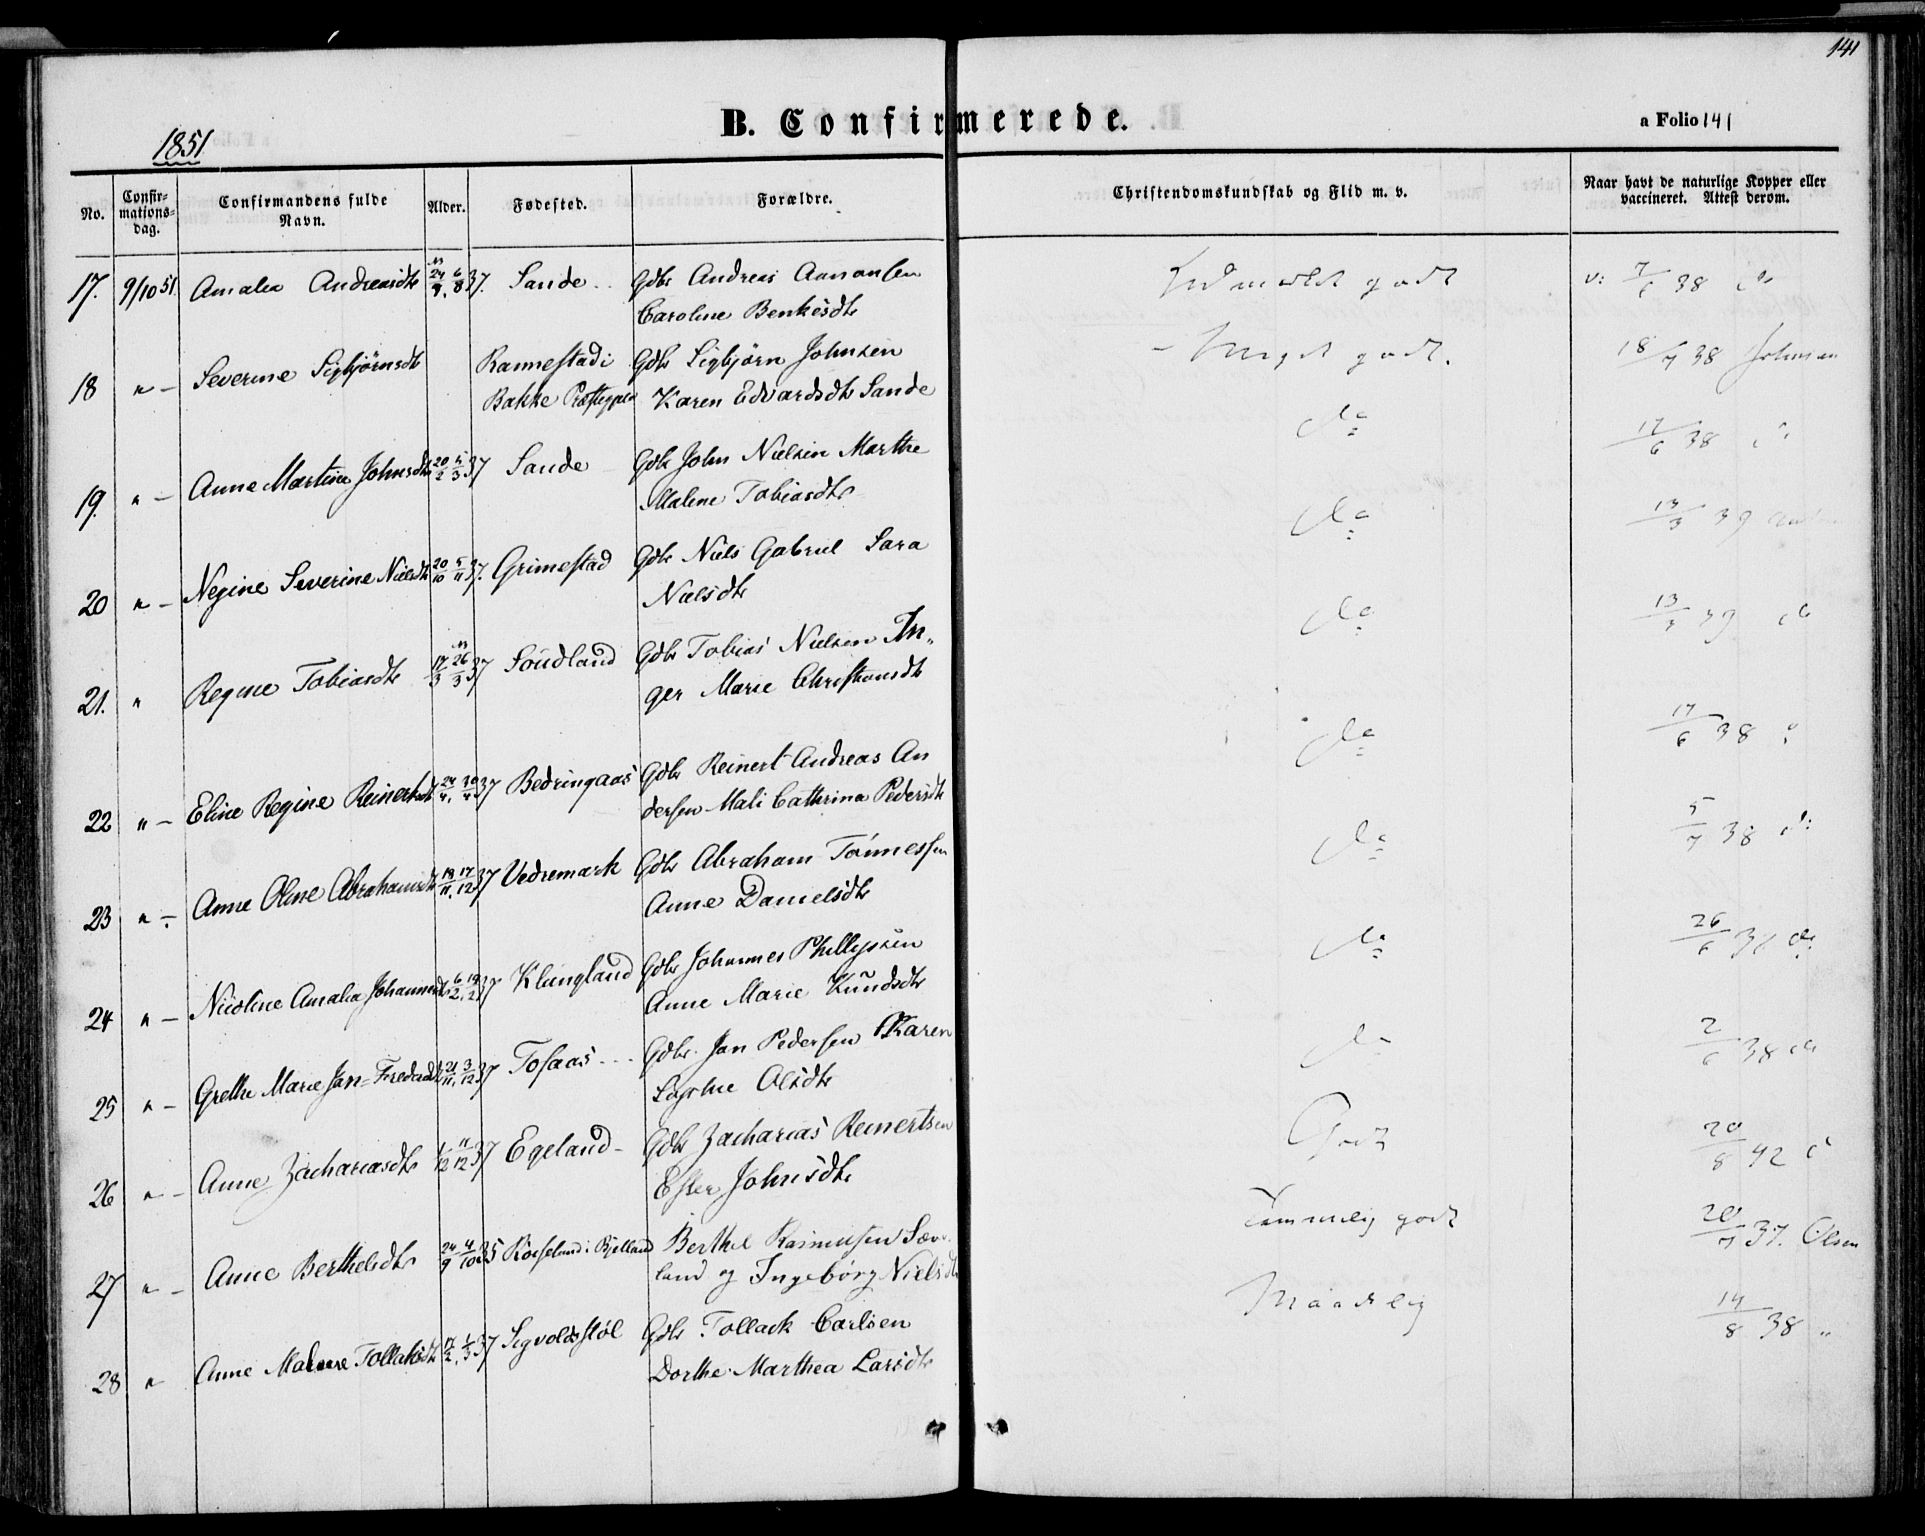 141
B. Confirmerede.
a Folio 141
1851
No.
Confirmations-
dag.
Confirmandens fulde
Navn.
Alder.
Fødested.
Forældre.
Christendomskundskab og Flid m. v.
Naar havt de naturlige Kopper eller
vaccineret. Attest derom.
17. 9/10 51. Amalia Andreasdtr 6/8 37. Sande Gdbr Andreas Aanonsen godt v: 38 do
Caroline Benkesdtr
18 " – Severine Sigbjørnsdtr Rannestad i Gdbr Sigbjørn Johnsen Meget godt. 18/7 38 Johnsen
Bakke Præstegjeld Karen Edvardsdtr Sande
19. " – Anne Martine Johnsdtr 20/2 5/3 37 Sande Gdbr John Nielsen Marthe do 17/6 38
Malene Tobiasdtr
20 " – Negine Severine Nielsdtr 20/10 5/11 37. Grimestad Gdbr Niels Gabriel Sara do 13/3 39
Nielsdtr
21. " Regine Tobiasdtr 17/3 26/3 37 Soudland Gdbr Tobias Nielsen In- do 13/3 39 do
ger Marie Christiansdtr
22 " – Eline Regine Reinertsdtr 24/4. 30/4 37 Bedringaas Gdbr Reinert Andreas An do 17/6 38
dersen Mali Cathrina Pedersdtr
23 " – Anne Oline Abrahamsdtr 18/11. 17/12 37 Vedremark Gdbr Abraham Tønnessen do 5/7 38 do
Anne Danielsdtr
24 " – Amalia Johannesdtr 6/2. 19/2 37 Klungland Gdbr Johannes Phillipsen do 26/6 do
Anne Marie Knudsdtr
25 " – Grethe Marie Jan-Fredrdtr 21/11. 3/12 37 Tosaas Gdbr. Jan Pedersen Karen do 2/6 38 do
Sophie Olsdtr
26 " – Anne Zachariasdtr 1/12 11/12 37 Egeland – Gdbr Zacharias Reinertsen Godt 20/8 42
Ester Johnsdtr
27 " – Anne Berthelsdtr 24/9 4/10 35 i Bjelland Berthel Rasmussen Sæve- Temmelig godt 20/7 37. Olsen
land og Ingebórg Nielsdtr
28 " Anne Malene Tollaksdtr 17/2. 1/3 37 Sigvoldsstøl Gdbr Tollack Carlsen Maadelig 14/8 38 "
Dorthe Marthea Larsdtr